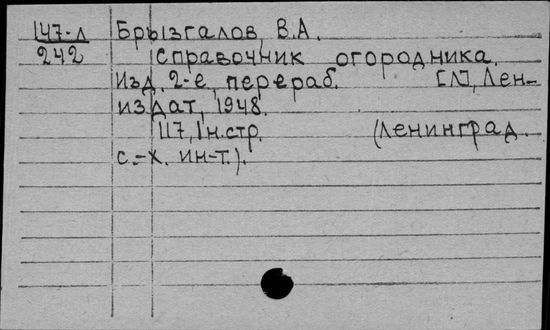 147-л Брызгалов, В.А.
242 Справочник огородника.
Изд. 2-е, перераб. [Л], Лен-
издат, 1948.
117, 1 н.стр. (Ленинград.
с.-х. ин-т.).